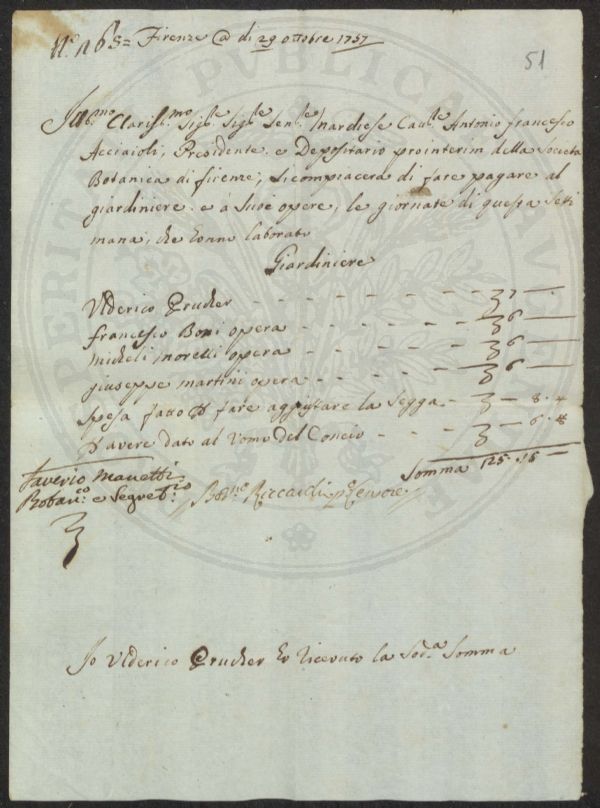 N.° 163= Firenze @ di 29 ottobre 1757
51
Ill.mo Clariss.mo Sig.re Sig.re Sen.re Marchese Cau.re Antonio francesco
Acciaioli, Presidente e Depositario prointerim della Società
Botanica di firenze, si compiacerà di fare pagare al
giardiniere e a sue opere, le giornate di questa Setti
mana, che hanno laborato
Giardiniere
Ulderico Prucher - - - - - 7 —
francesco Boni opera - - - - 6 —
Micheli Moretti opera - - - - 6 —
giuseppe martini opera - - - 6 —
Spesa fatto fare aggiustare la Segga - - 8. 4
avere dato al Uomo del Concio - - - 6. 8
Somma 125. 15 —
Saverio Manetti
Botan.co e Segret.rio
Riccardi
Io Ulderico Prucher ho ricevuto la Sod.a Somma
SPERITAS PUBLICA AUGUSTAE